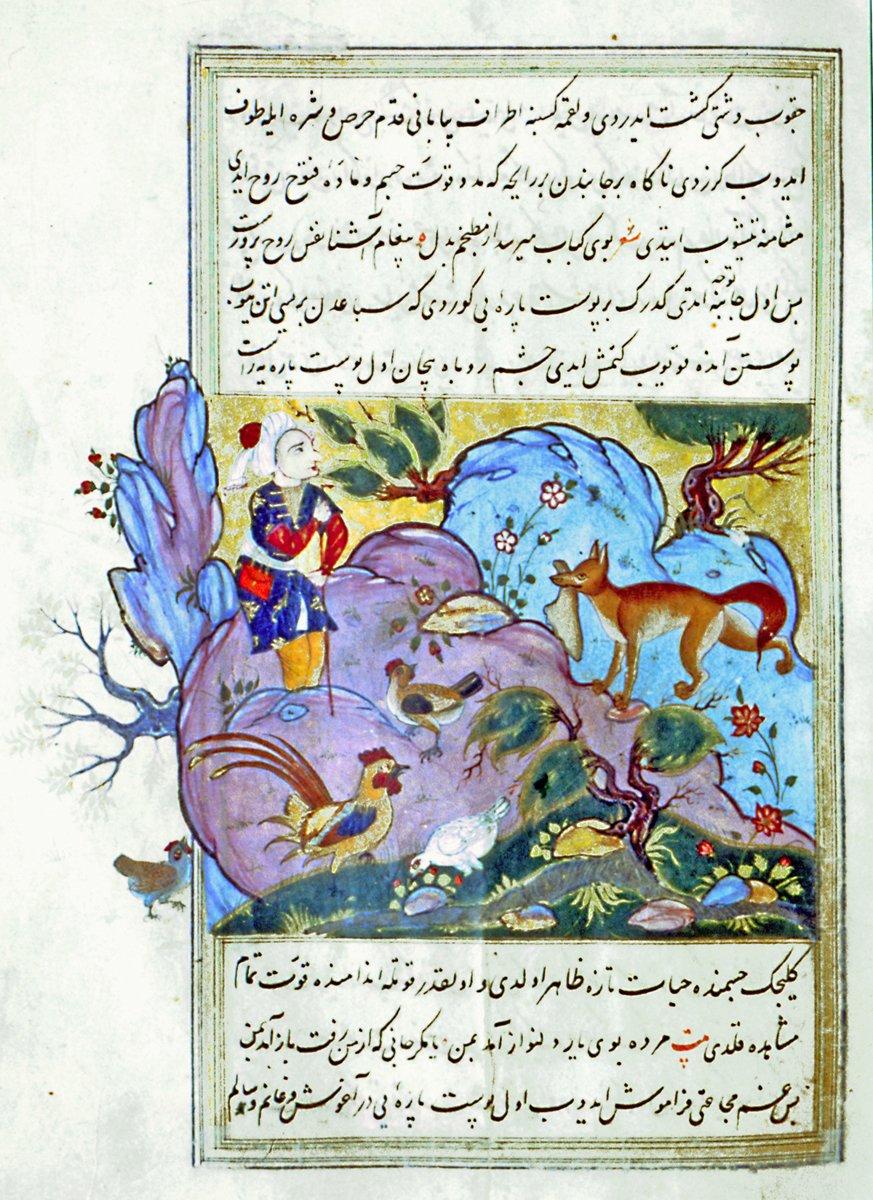 چقوب دشتی کشت ایدردی و لقمه کسبنه اطراف بیابانی قدم حرص و شره ایله طوف
ایدوب کرزدی ناکاه بر جانبدن بر رایحه که مدد قوت جسم و ماده فتوح روح ایدی
مشامنه یتیشوب ایتدی شعر بوی کباب میرسد از مطبخم بدل پیغام آشنا نفس روح پرورست
بس اول جانبه توجه ایتدی کدرک بر پوست پاره یی کوردی که سباعدن بریسی اتن ییوب
پوستن آنده قویوب کتمش ایدی چشم روباه چجان اول پوست پاره یه راست
کلیجک جسمنده حیات تازه ظاهر اولدی و اولقدر قوتله اندامنده قوت تمام
مشاهده قلدی بیت مرده بوی یار دلنواز آمد بمن یا مکر جانی که از من رفت باز آمد بمن
بس غم مجاعتی فراموش ایدوب اول پوست پاره یی در آغوش و غانم و سالم